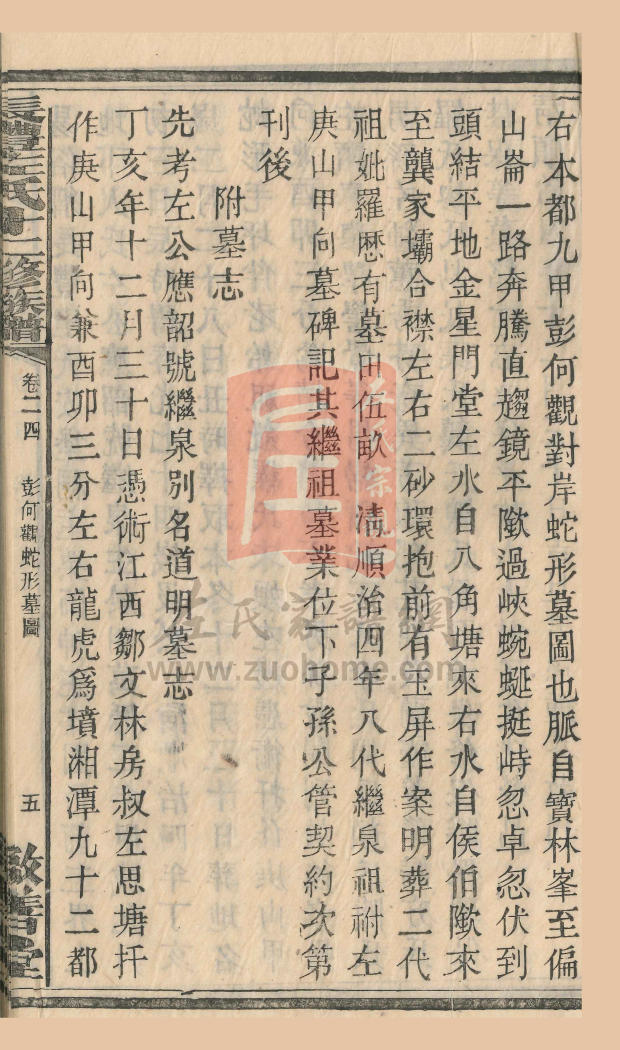 右本都九甲彭何觀對岸蛇形墓圖也脈自寶林峯至偏
山崙一路奔騰直趨鏡平塅過峽蜿蜒挺峙忽卓忽伏到
頭結平地金星門堂左水自八角塘來右水自侯伯塅來
至龔家壩合襟左右二砂環抱前有玉屏作案明葬二代
祖妣羅歷有墓田伍畝 清順治四年八代繼泉祖祔左
庚山甲向墓碑記其繼祖墓業位下子孫公管契約次第
刊後
附墓志
先考左公應韶號繼泉別名道明墓志
丁亥年十二月三十日憑術江西鄒文林房叔左思塘扦
作庚山甲向兼酉卯三分左右龍虎爲墳湘潭九十二都
長豊左氏十二修族譜
卷二四
彭何觀蛇形墓圖
五
敦善堂
左氏家譜網
www.zuohome.com